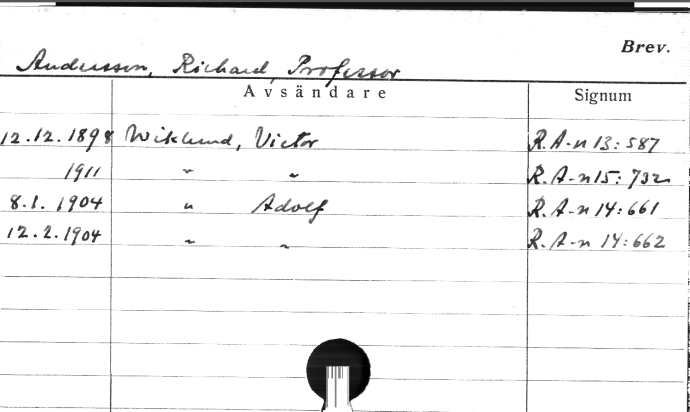 Brev.
Andersson, Richard, Professor
Avsändare Signum
12.12.1898 Wiklund, Victor R.A-n 13:587
1911 " " R.A-n 15:732
8.1.1904 " Adolf R.A-n 14:661
12.2.1904 " " R.A-n 14:662